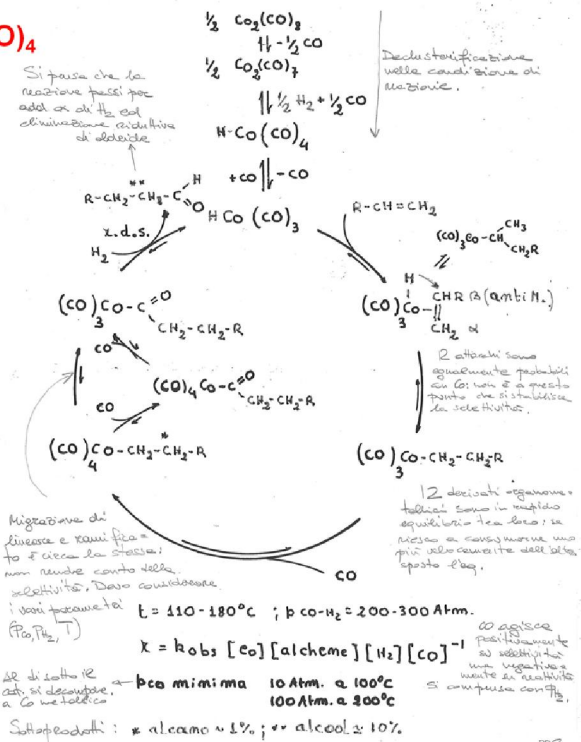 O)4
½ Co2(CO)8
⇅ -½CO
½ Co2(CO)7
⇅ ½ H2 + ½ CO
H-Co(CO)4
+CO ⇅ -CO
HCo(CO)3
Declusterificazione
nelle condizione di
reazione.
Si pensa che la
reazione passi per
add ox di H2 ed
eliminazione riduttiva
di aldeide
**
R-CH2-CH2-C
H
O
r.d.s.
H2
R-CH=CH2
CH3
(CO)3Co-CH
CH2R
H
(CO)3Co-
CHR β (anti M.)
CH2 α
2 attacchi sono
egualmente probabili
su Co: non è a questo
punto che si stabilisce
la selettività.
(CO)3Co-C
O
CH2-CH2-R
CO
(CO)4Co-C=O
CH2-CH2-R
CO
*
(CO)4Co-CH2-CH2-R
(CO)3Co-CH2-CH2-R
I 2 derivati organome-
tallici sono in rapido
equilibrio tra loro; se
riesco a consumarne uno
più velocemente dell'altro
sposto l'eq.
Migrazione di
lineare e ramifica=
to è circa la stessa;
non rende conto della
selettività. Devo considerare
i vari parametri
(PCO, PH2, T)
CO
t = 110-180°C ; p CO-H2 = 200-300 Atm.
r = kobs [Co] [alchene] [H2] [CO]-1
CO agisce
positivamente
su selettività
ma negativa=
mente su reattività
si compensa con PH2.
Al di sotto il
cat. si decompone
a Co metallico
pCO minima 10 Atm. a 100°C
100 Atm. a 200°C
Sottoprodotti : * alcano ~ 1% ; ** alcool ≥ 10%